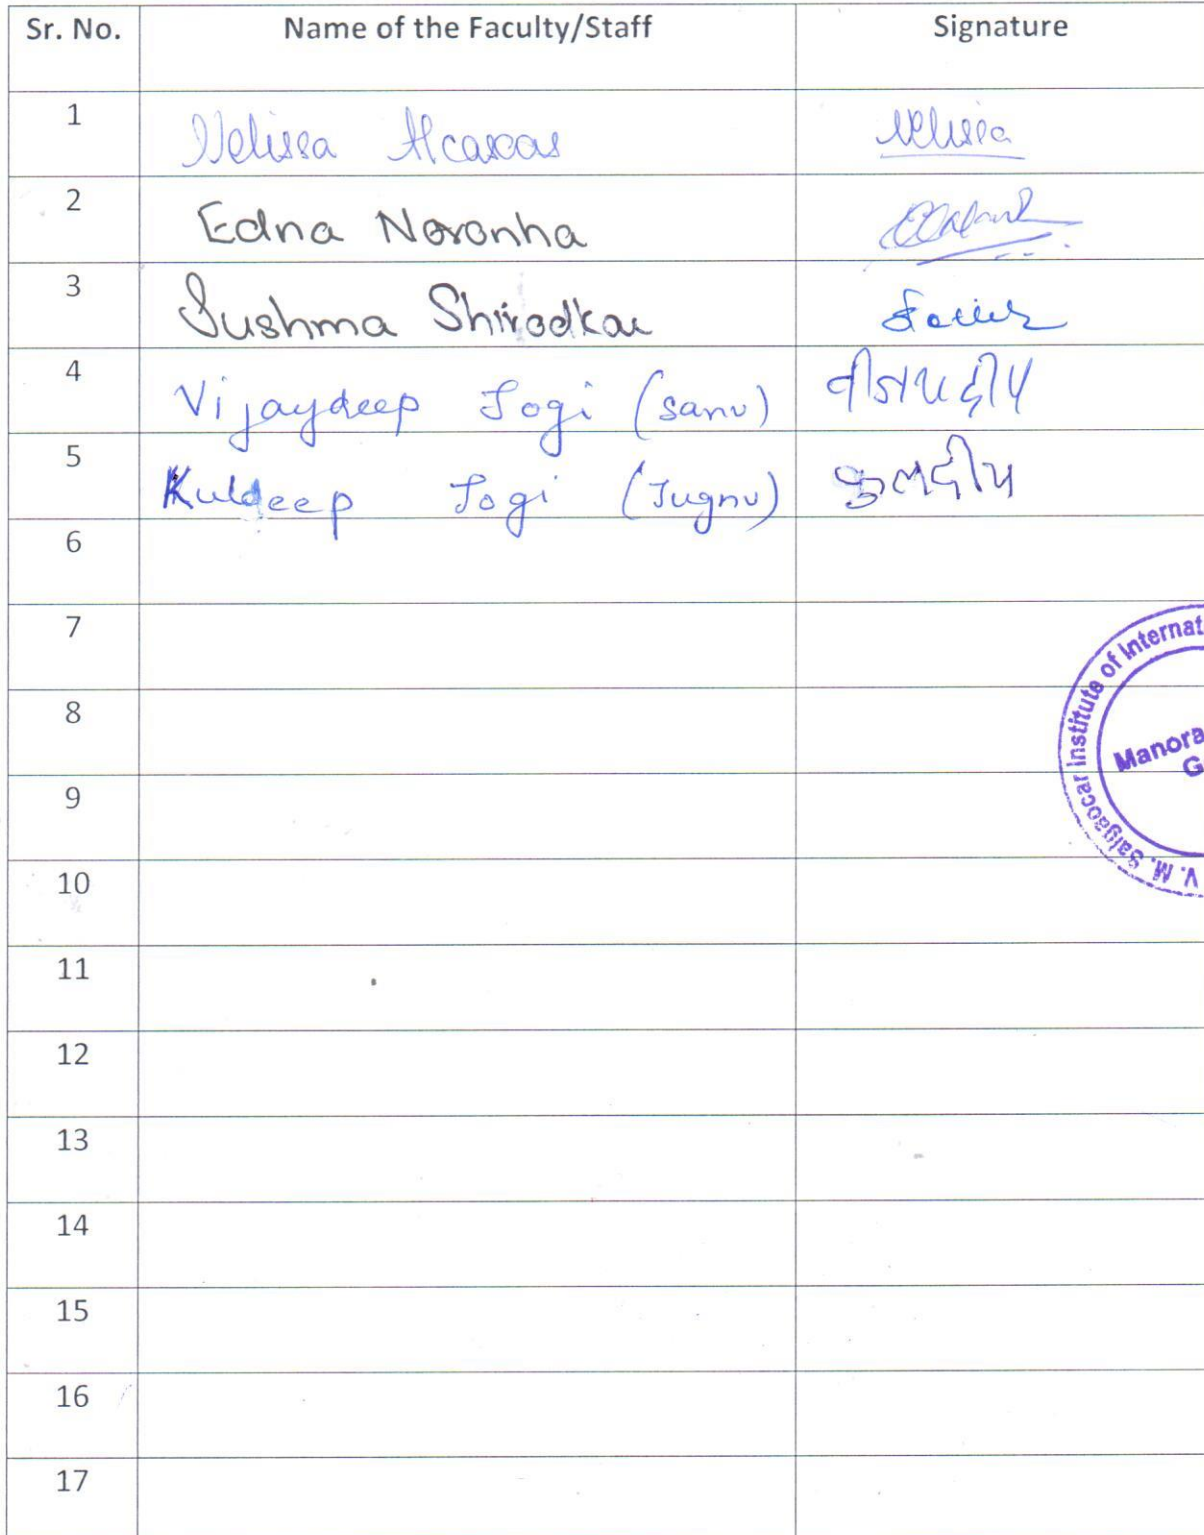 Sr. No. Name of the Faculty/Staff Signature
1 Nelissa Alcasoas Nelissa
2 Edna Noronha
3 Sushma Shirodkar
4 Vijaydeep Jogi (sanu) वीजयदीप
5 Kuldeep Jogi (Jugnu) कुलदीप
6
7
8
9
10
11
12
13
14
15
16
17
V. M. Salgaocar Institute of Internat
Manora
G